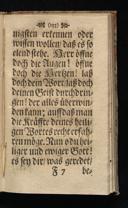 nigsten erkennen oder
wissen wollen / daß es so
elend stehe. HErr öffne
doch die Augen! öffne
doch die Hertzen! laß
doch dein Wort / laß doch
deinen Geist durchdrin-
gen! der alles überwin-
den kann; auff daß man
die Kräffte deines heili-
gen Wortes recht erfah-
ren möge. Nun o du hei-
liger und ewiger Gott!
es sey dir was geredet /
F 7 be-